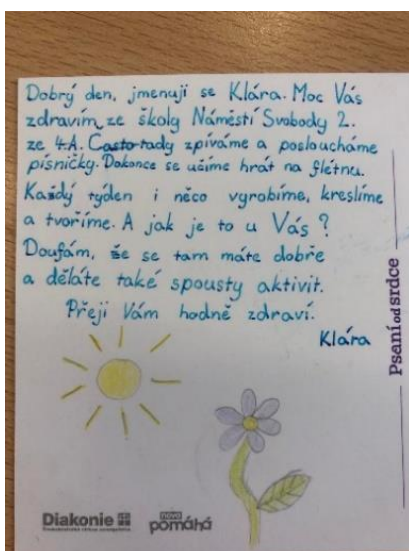 Dobrý den, jmenuji se Klára. Moc Vás
zdravím ze školy Náměstí Svobody 2.
ze 4.A. Často tady zpíváme a posloucháme
písničky. Dokonce se učíme hrát na flétnu.
Každý týden i něco vyrobíme, kreslíme
a tvoříme. A jak je to u Vás?
Doufám, že se tam máte dobře
a děláte také spousty aktivit.
Přeji Vám hodně zdraví.
Klára
Psaní od srdce
Diakonie
nova
pomáhá